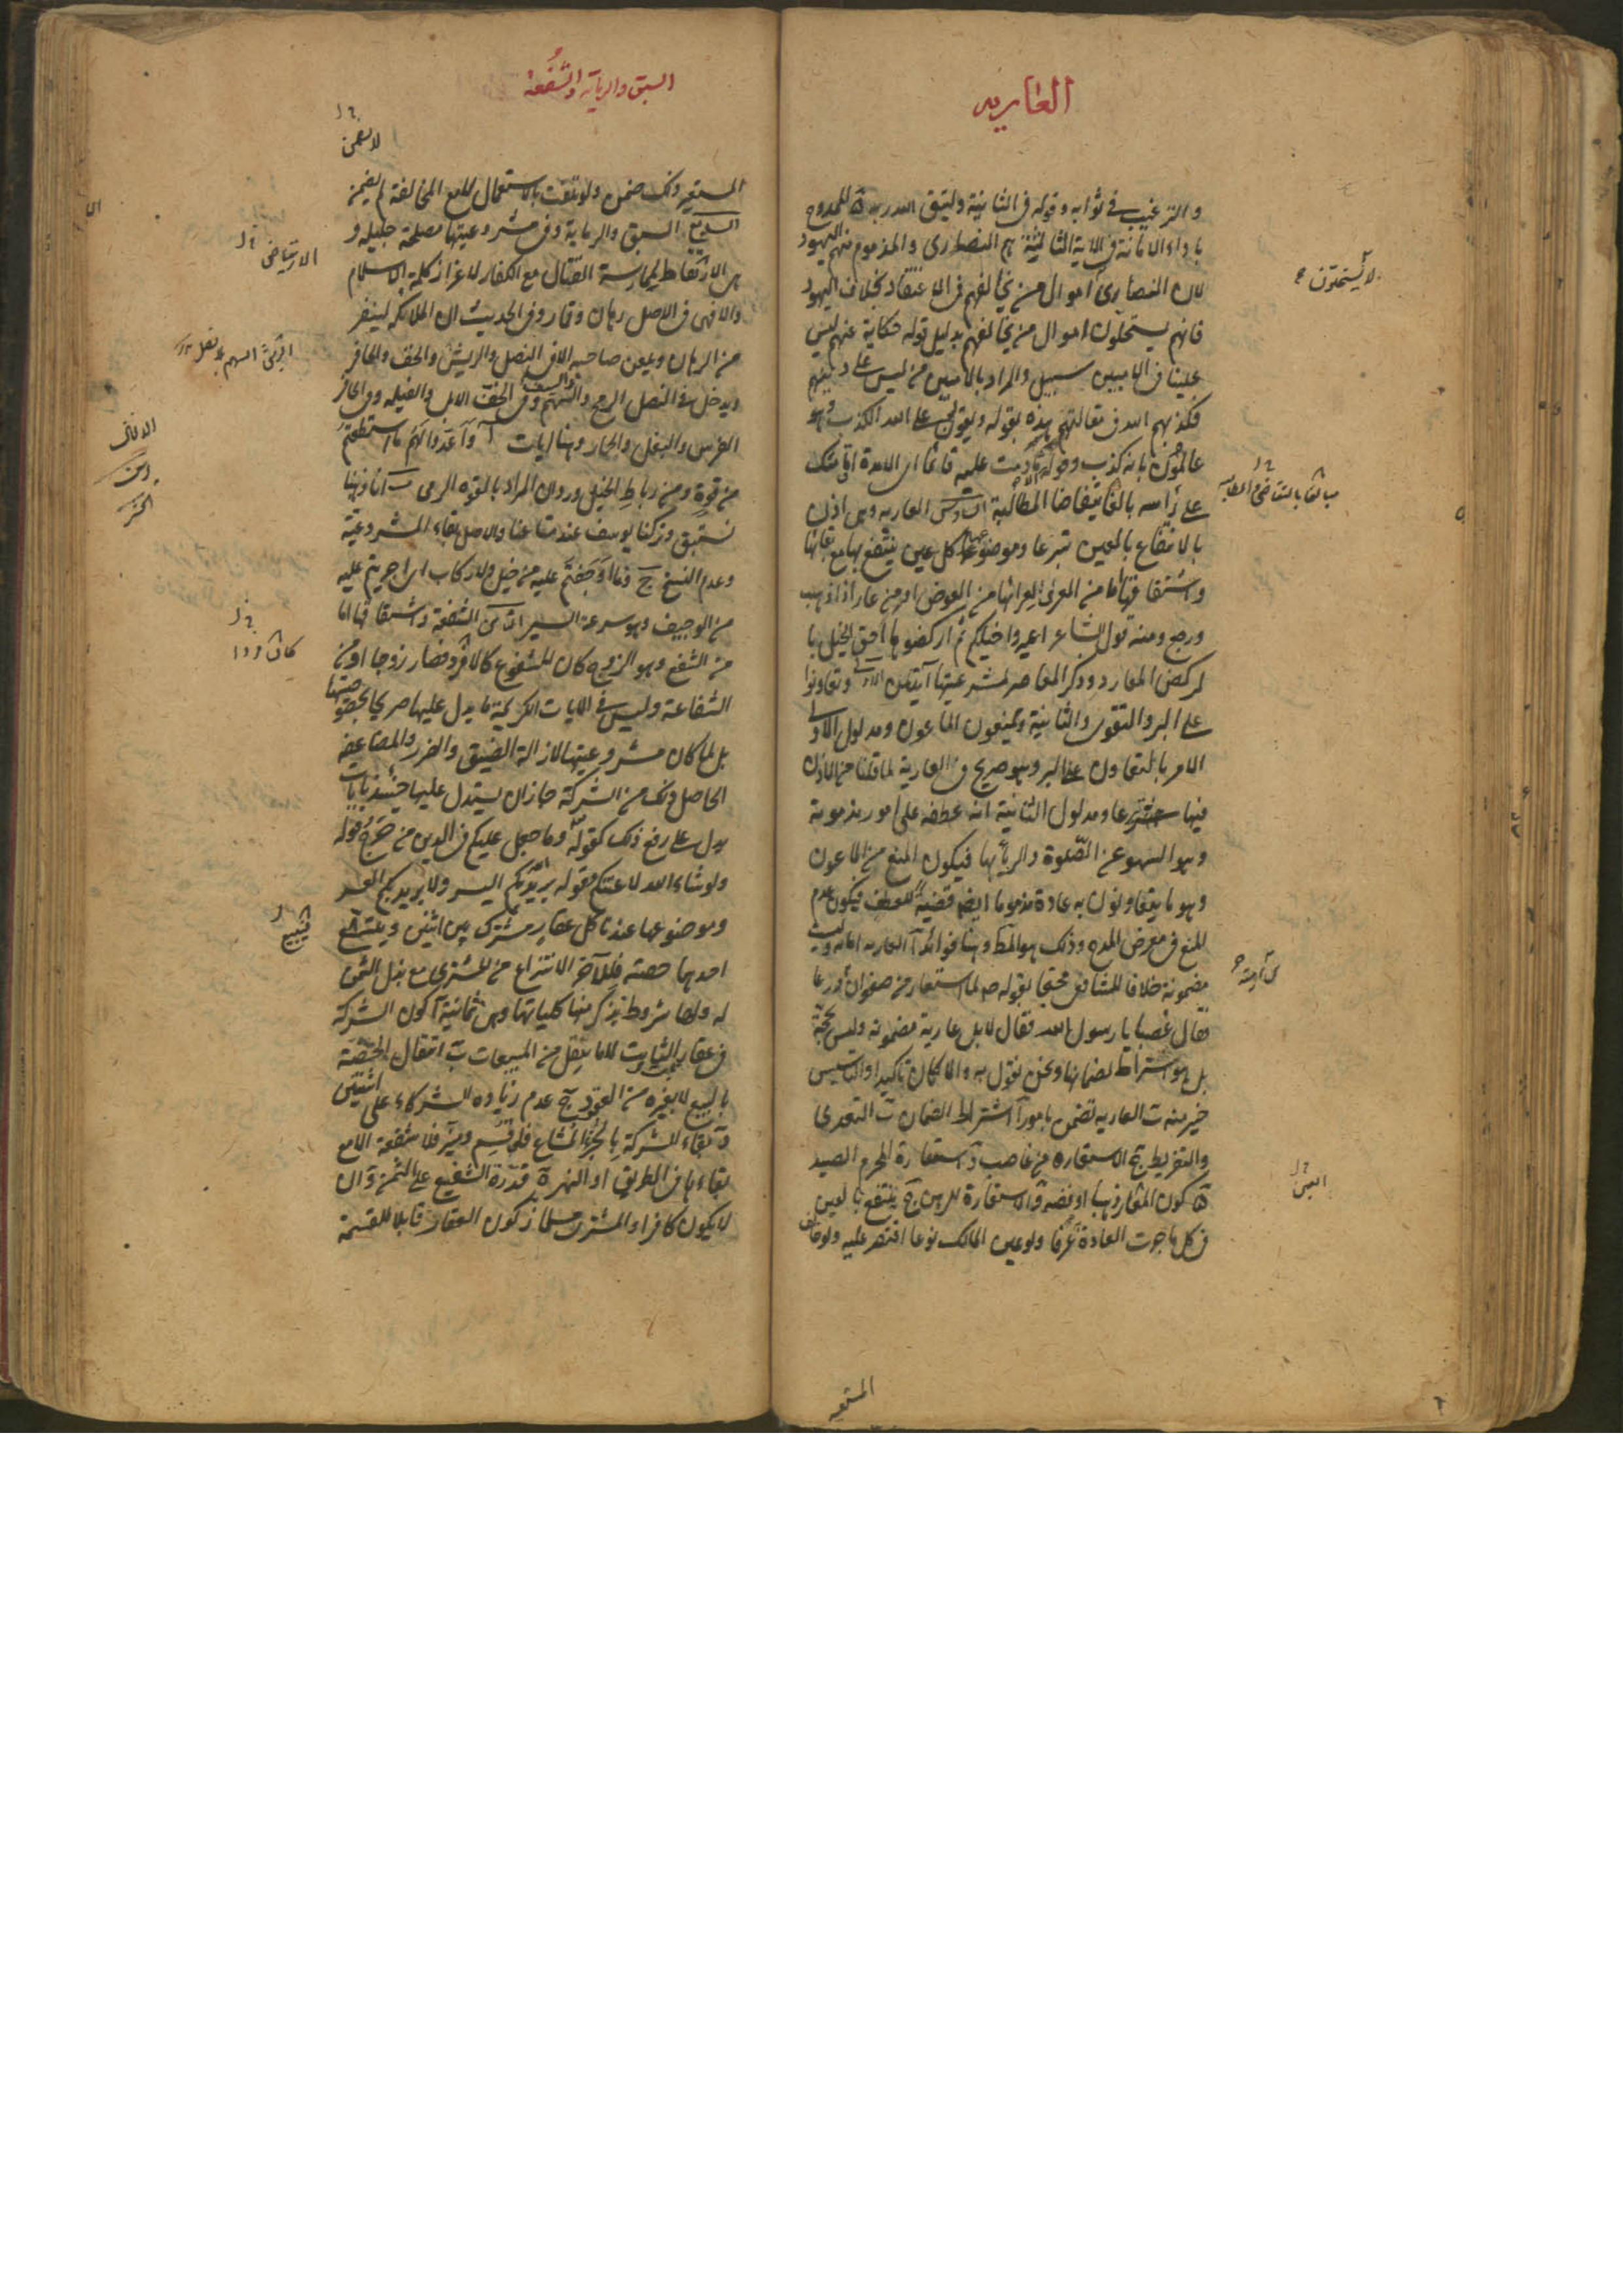 العارية
والترغيب في ثوابه وقوله في الثانية وليتق الله ربه ة الممدوح
باداء الامانة في الآية الثالثة هم النصارى والمذموم منهم اليهود
لان النصارى اموال من يخالفهم في الاعتقاد بخلاف اليهود
لا يستحلون
فانهم يستحلون اموال من يخالفهم بدليل قوله حكاية عنهم ليس
علينا في الاميين سبيل والمراد بالاميين من ليس على دينهم
فكذبهم الله في مقالتهم هذه بقوله ويقولون على الله الكذب وهو
عالمون بانه كذب وقوله الا ما دمت عليه قائما اي لامدة اقامتك
على رأسه بالمطالبة السادس العارية وهي اذن
مبالغا بالتقاضي والمطالبة
بالانتفاع بالعين تبرعا وموضوعها كل عين ينتفع بها مع بقائها
واشتقاقها اما من العري لعرائها من العوض او من عار اذا ذهب
ورجع ومنه قول الشاعر اعيروا خيلكم ثم اركضوها احق الخيل با
لركض المعار وذكر المعاصر لمشرعيتها آيتين الاولى وتعاونوا
على البر والتقوى والثانية ويمنعون الماعون ومدلول الاولى
الامر بالتعاون على البر وهو صريح في العارية لما قلنا من الاذن
فيها تبرعا ومدلول الثانية انه عطفه على امور مذمومة
وهو السهو عن الصلوة والرياء بها فيكون المنع من الماعون
وهو ما يتعاونون به عادة مذموما ايضا قضية للعطف فيكون عدم
المنع في معرض المدح وذلك هو المط وهنا فوائد آ العارية امانة وليست
مضمونة خلافا للشافعي محتجا بقوله ص لما استعار من صفوان درعا
بن امية
فقال غصبا يا رسول الله فقال لا بل عارية مضمونة وليس بحجة
بل هو اشتراط لضمانها ونحن نقول به والا لكان تاكيدا والتاسيس
خير منه ب العارية تضمن بامور آ اشتراط الضمان ب التعدي
والتفريط ج الاستعارة من غاصب د استعارة المحرم الصيد
ه كون المعار ذهبا او فضة و الاستعارة للرهن ج ينتفع بالعين
العين
في كل ما جرت العادة عرفا ولو عين المالك نوعا اقتصر عليه ولو خالف
المستعير
السبق والرماية والشفعة
لا يضمن
المستعير ذلك ضمن ولو تلفت بالاستعمال لا مع المخالفة لم يضمن
السابع السبق والرماية وفي مشروعيتها مصلحة جليلة و
هي الارتعاض لممارسة القتال مع الكفار لاعزاز كلمة الاسلام
الارتياض
والا فهي في الاصل رهان وقمار وفي الحديث ان الملائكة لتنفر
من الرهان ويلعن صاحبه الا في النصل والريش والخف والحافر
ويدخل في النصل الرمح والسهم والسيف وفي الخف الابل والفيلة وفي الحافر
الفرس والبغل والحمار وهنا ايات آ واعدوا لهم ما استطعتم
من قوة ومن رباط الخيل وروي ان المراد بالقوة الرمي ب انا ذهبنا
نستبق وتركنا يوسف عند متاعنا والاصل بقاء المشروعية
وعدم النسخ ج فما اوجفتم عليه من خيل ولا ركاب اي اجريتم عليه
من الوجيف وهو سرعة السير الثامن الشفعة واشتقاقها اما
من الشفع وهو الزوج كان المشفوع كالاثر وفصار زوجا او من
كان فردا
الشفاعة وليس في الايات الكريمة ما يدل عليها صريحا بخصوصيتها
بل لما كان مشروعيتها لازالة الضيق والضرر والمضايقة
الحاصل ذلك من الشركة جاز ان يستدل عليها حينئذ بايات
يدل على رفع ذلك كقوله وما جعل عليكم في الدين من حرج وقوله
ولو شاء الله لاعنتكم وقوله يريد الله بكم اليسر ولا يريد بكم العسر
وموضوعها عندنا كل عقار مشترك بين اثنين ويبيع
فيبيع
احدهما حصته فللآخر الانتزاع من المشتري مع بذل الثمن
له ولها شروط نذكر منها كلياتها وهي ثمانية آ كون الشركة
في عقار الثابت لا ما ينقل من المبيعات ب انتقال الحصة
بالبيع لا بغيره من العقود ج عدم زيادة الشركاء على اثنين
د بقاء الشركة بالجزء المشاع فلو قسم وميز فلا شفعة الا مع
بقاءها في الطريق او النهر ه قدرة الشفيع على الثمن و ان
لا يكون كافرا والمشتري مسلما ز كون العقار قابلا للقسمة